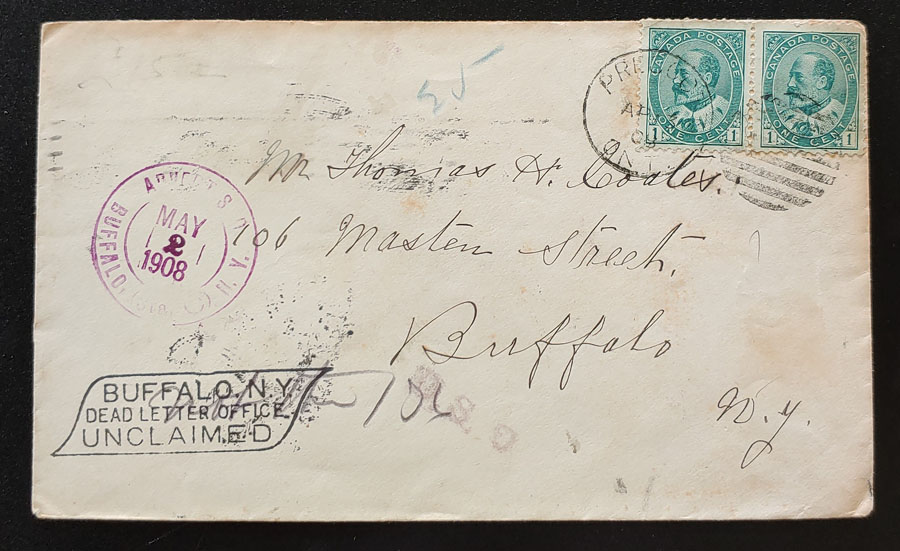 25
CANADA POSTAGE
1 ONE CENT 1
CANADA POSTAGE
1 ONE CENT 1
ONT
Mr Thomas H. Coates.
106 Masten Street.
Buffalo
N.Y.
BUFFALO, N.Y.
MAY
2
1908
BUFFALO, N.Y.
DEAD LETTER OFFICE
UNCLAIMED